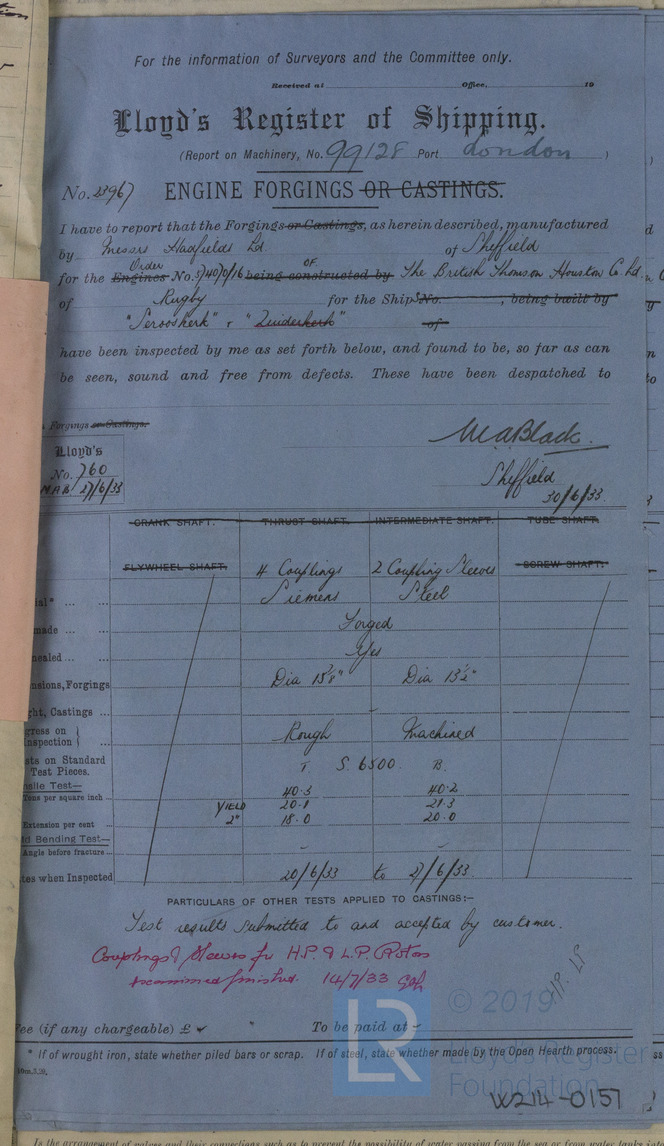 For the information of Surveyors and the Committee only.
Received at Office, 19
Lloyd's Register of Shipping.
(Report on Machinery, No. 99128 Port London )
No. 23967 ENGINE FORGINGS OR CASTINGS.
I have to report that the Forgings or Castings, as herein described, manufactured
by Messrs Hadfields Ld. of Sheffield
Order OF
for the Engines No. 3/40/0/16 being constructed by The British Thomson Houston Co. Ld.
of Rugby for the Ships No. , being built by
"Serooskerk" & "Zuiderkerk" of
have been inspected by me as set forth below, and found to be, so far as can
be seen, sound and free from defects. These have been despatched to
Forgings or Castings.
Lloyd's
No. 760
M.A.B 27/6/33
M A Black.
Sheffield
30/6/33.
CRANK SHAFT. THRUST SHAFT. INTERMEDIATE SHAFT. TUBE SHAFT.
FLYWHEEL SHAFT. 4 Couplings 2 Coupling Sleeves SCREW SHAFT.
ial* ... ... Siemens Steel
made ... ... Forged
ealed ... ... Yes
nsions, Forgings Dia 15⅞" Dia 13½"
ght, Castings ...
gress on
nspection } ... Rough Machined
sts on Standard
Test Pieces. T. S. 6500. B.
sile Test—
Tons per square inch ... 40.3 40.2
YIELD 20.1 21.3
Extension per cent ... 2" 18.0 20.0
d Bending Test—
Angle before fracture ... - -
tes when Inspected 20/6/33 to 27/6/33.
PARTICULARS OF OTHER TESTS APPLIED TO CASTINGS:—
Test results submitted to and accepted by customer.
Couplings & Sleeves for H.P. & L.P. Rotors
examined finished. 14/7/33
H.P. LP
Fee (if any chargeable) £ " To be paid at
* If of wrought iron, state whether piled bars or scrap. If of steel, state whether made by the Open Hearth process.
© 2019
LR
Lloyd's Register
Foundation
W214-0157